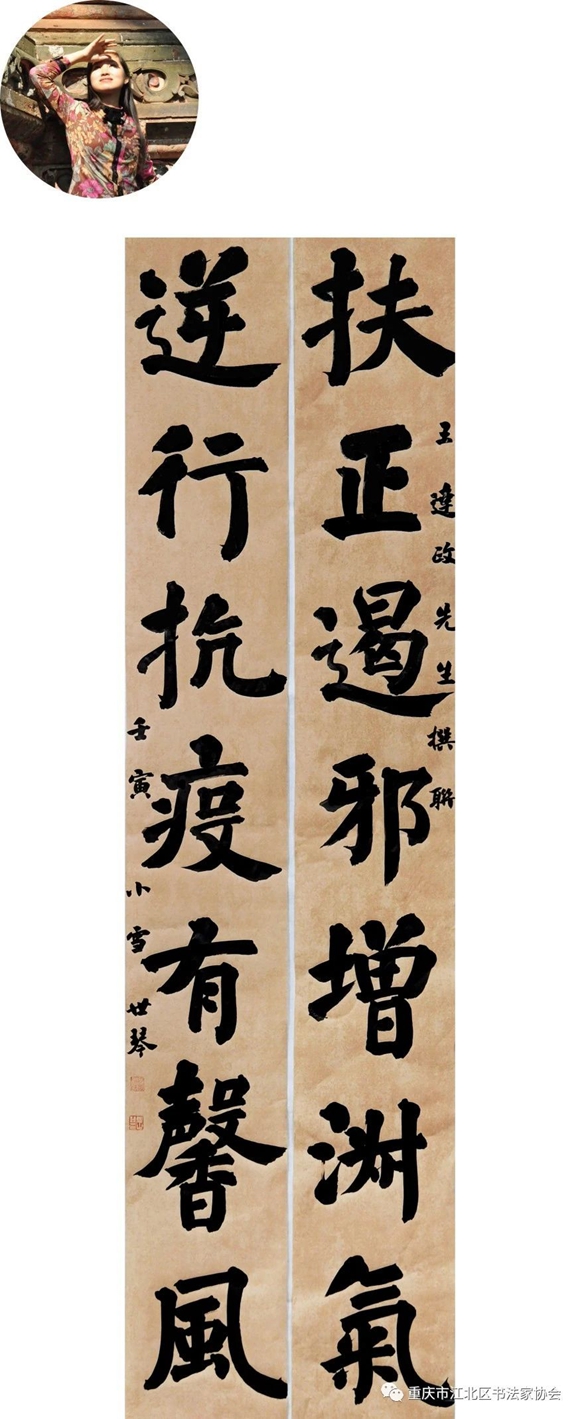 扶正遏邪增渊氣
王達政先生撰聯
逆行抗疫有馨風
壬寅小雪世琴
重庆市江北区书法家协会